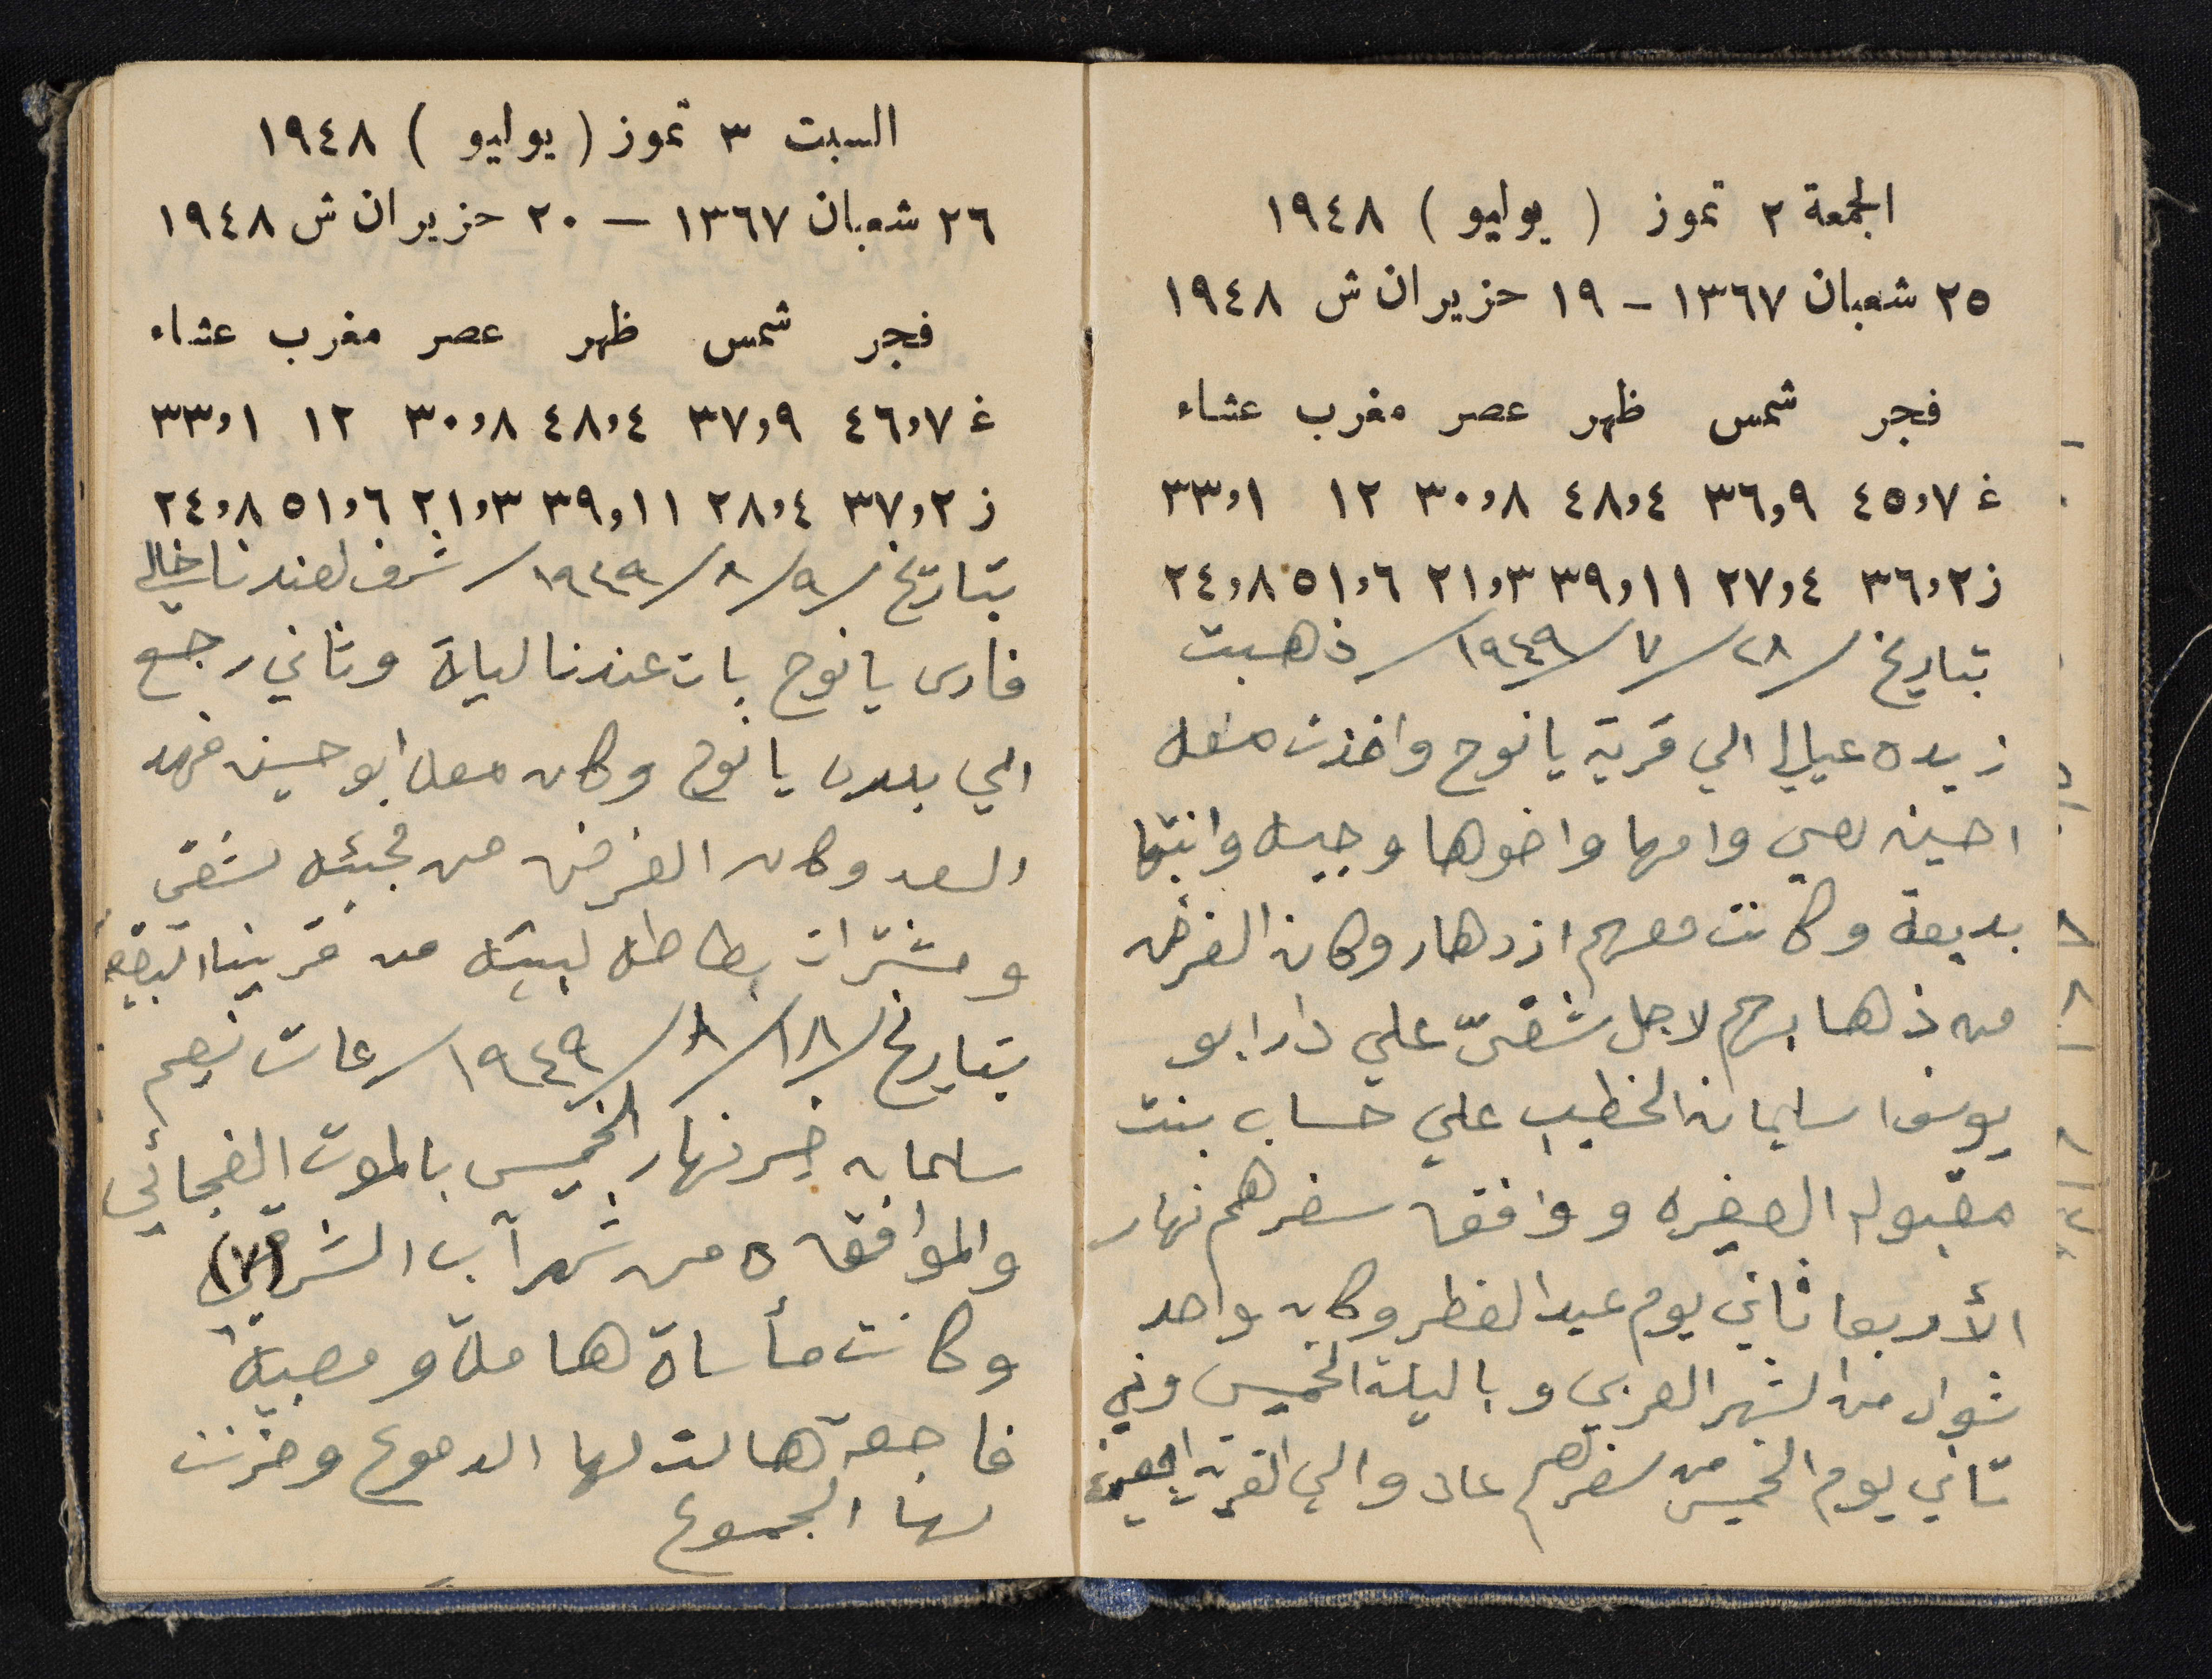 الجمعة ٢ تموز ( يوليو ) ١٩٤٨
٢٥ شعبان ١٣٦٧ – ١٩ حزيران ش ١٩٤٨
فجر شمس ظهر عصر مغرب عشاء
غ ٤٥،٧ ٣٦،٩ ٤٨،٤ ٣٠،٨ ١٢ ٣٣،١
ز ٣٦،٢ ٢٧،٤ ٣٩،١١ ٢١،٣ ٥١،٦ ٢٤،٨
بتاريخ /٢٨/٧/١٩٤٩/ ذهبت
زيده عيالي الي قرية يانوح واخذت معها
وامها واخوها وجيه وابنتها
بديعة وكانت معهم ازدهار وكان الغرض
من ذهابهم لاجل شقىّ علي دار ابو
يوسف سليمان الخطيب علي حساب بنت
مقبوله الصغيره ووافق سفرهم نهار
الأربعا ثاني يوم عيد الفطر وكان واحد
شوال من الشهر العربي وباليلة الخميس وفي
تاني يوم الخميس من سفرهم عادو الي القرية
السبت ٣ تموز ( يوليو ) ١٩٤٨
٢٦ شعبان ١٣٦٧ – ٢٠ حزيران ش ١٩٤٨
فجر شمس ظهر عصر مغرب عشاء
غ ٤٦،٧ ٣٧،٩ ٤٨،٤ ٣٠،٨ ١٢ ٣٣،١
ز ٣٧،٢ ٢٨،٤ ٣٩،١١ ٢١،٣ ٥١،٦ ٢٤،٨
بتاريخ /٩/٨/١٩٤٩/ شرف لعندنا خالي
فارس يانوح بات عندنا ليلة وثاني رجع
الي بلده يانوح وكان معه ابو حسين فهد
السعد وكان الغرض من مجيئه لشقى
ومشترات بطاطه لبيته من قريتنا البقيعة
بتاريخ /١٨/٨/١٩٤٩/ مات نعيم
سلمان خير نهار الخميس بالموت الفجائي
والموافق ٥ من شهر آب الشرقي (٧)
وكانت مأساة هامة ومصيبة
فاجعة هالت لها الدموع وحزنت
لها الجموع